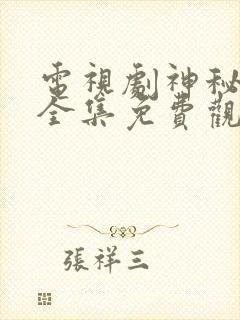 電視劇神秘
全集免費觀
張祥三